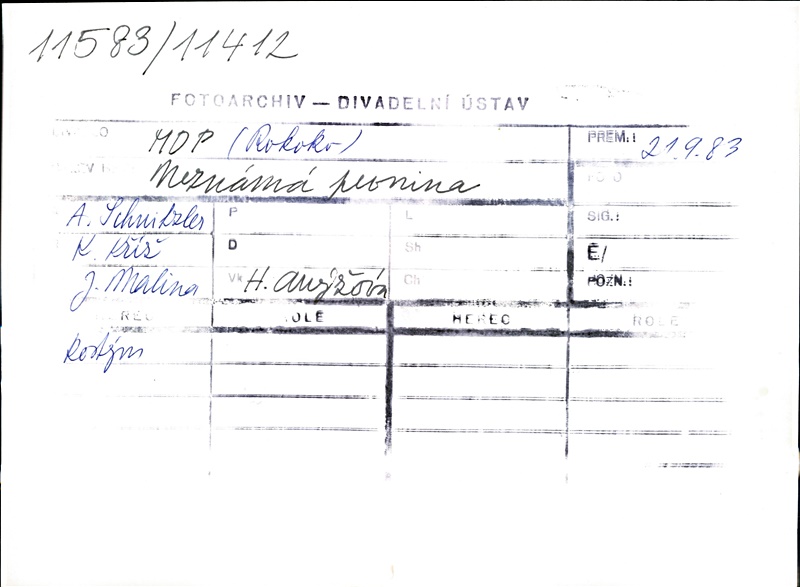 11583/11412
FOTOARCHIV — DIVADELNÍ ÚSTAV
MDP (Rokoko) PREM.: 21.9.83
Neznámá pevnina
A. Schnitzler P L SIG.:
K. Kříž D Sh E/
J. Malina Vk H. Anýžová Ch POZN.:
ROLE HEREC ROLE
Kostým